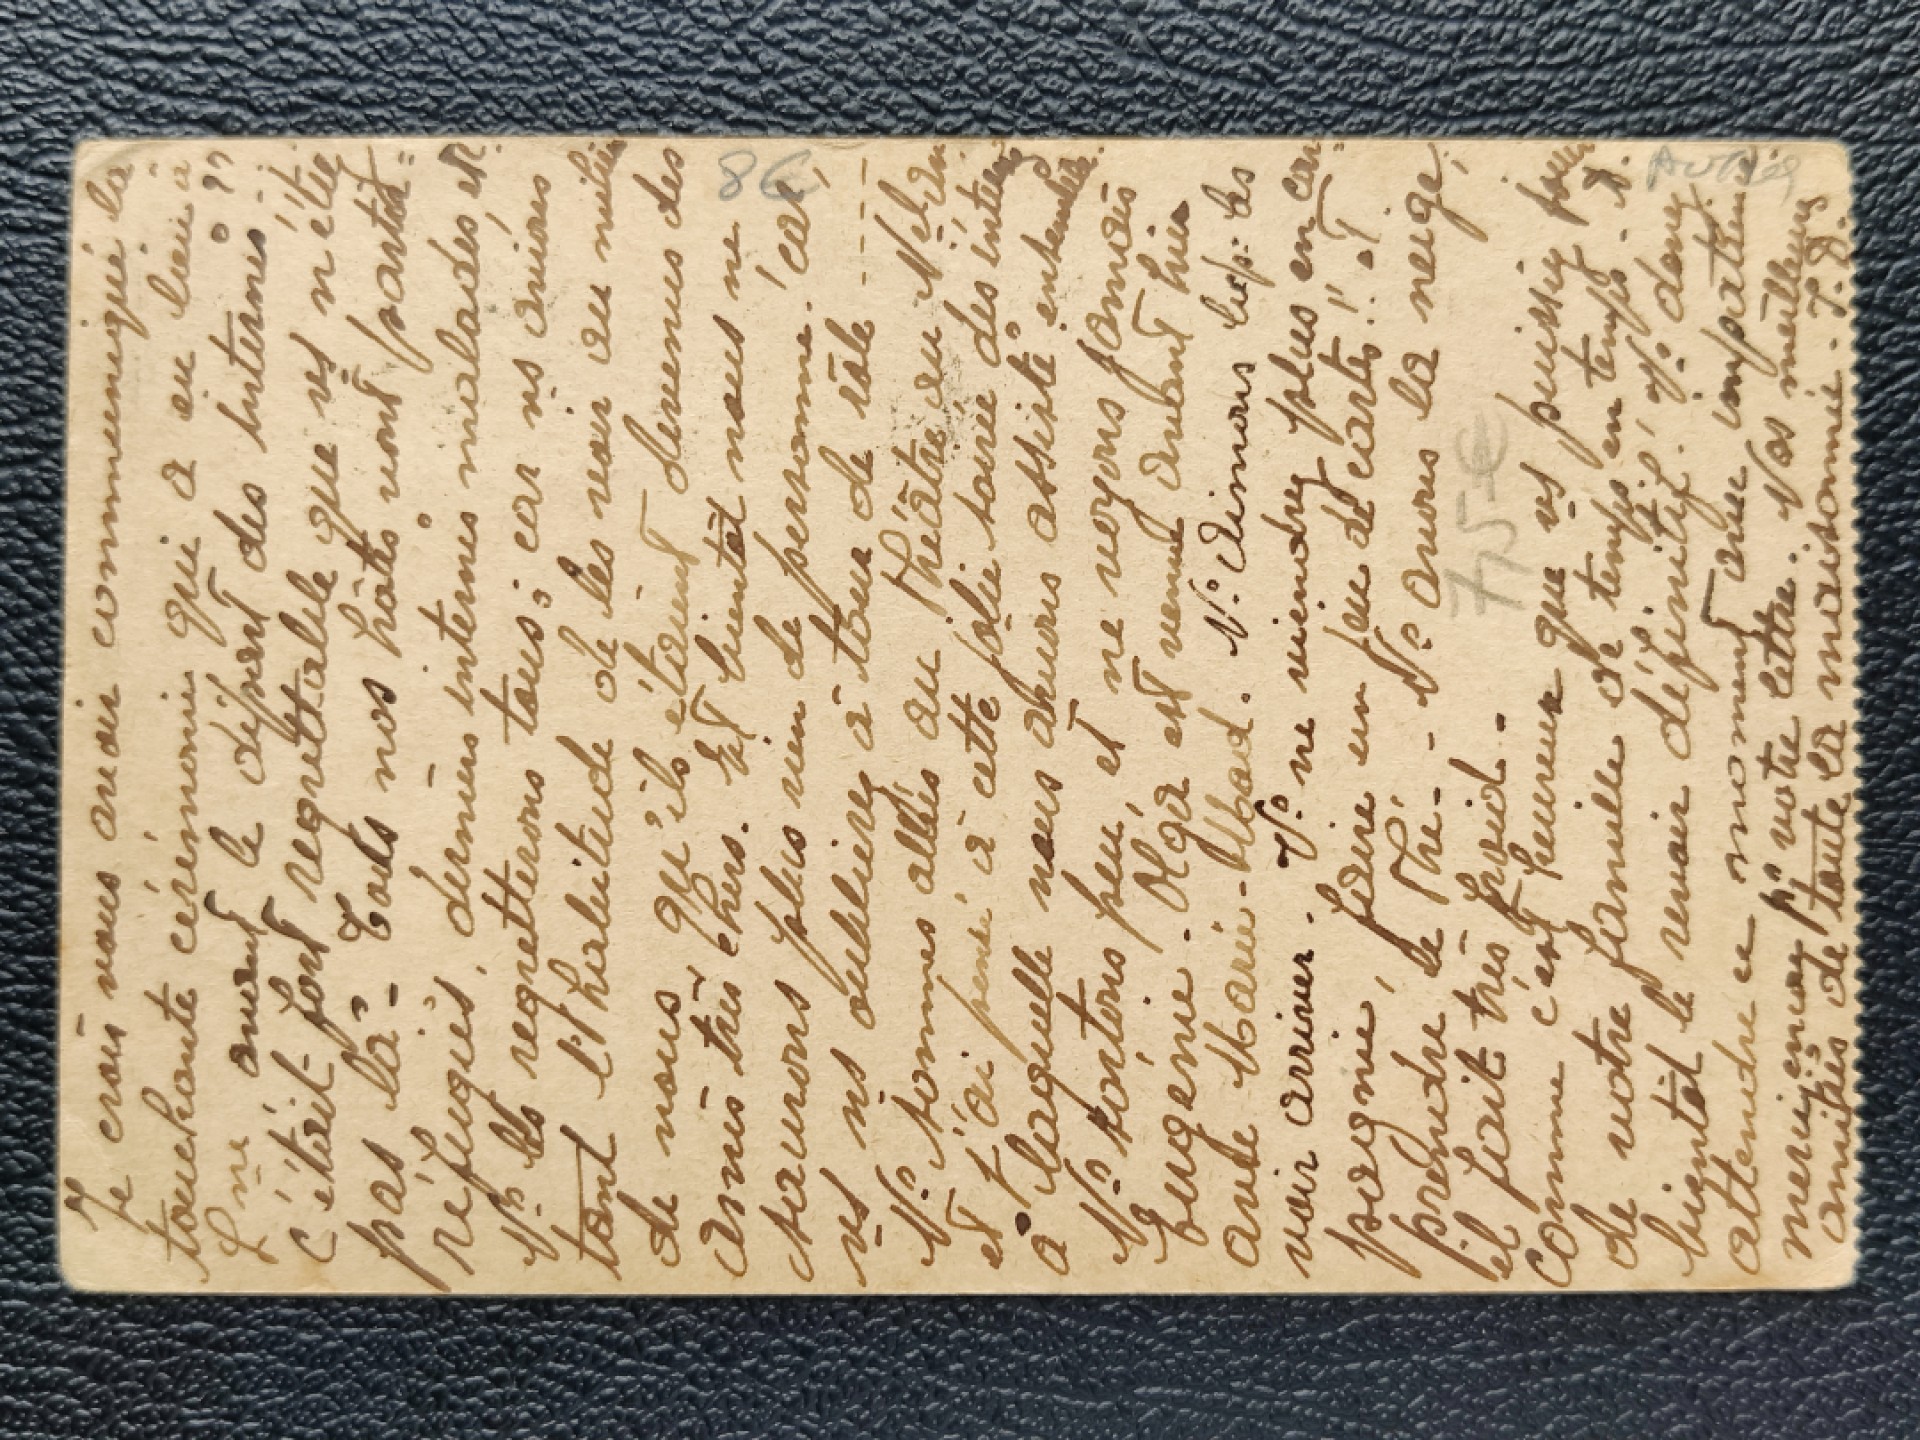 Je crois vous avoir communiqué la
touchante cérémonie qui a eu lieu à
avant le départ des internés.
c'était fort regrettable que vs n'étiez
pas là - Tous nos hôtes vont partir
réfugiés, derniers internés malades etc.
Ns les regretterons tous; car ns avions
tant l'habitude de les voir au milieu
de nous qu'ils étaient devenus des
amis très chers. Et bientôt nous ne
saurons plus rien de personne. car,
vs ns oublierez à tour de rôle - - - -
Ns sommes allés au Théâtre au
et j'ai pensé à cette jolie soirée des internés
à laquelle nous avions assisté ensemble.
Ns sortons peu, et ne voyons jamais
Eugénie. Olga est venue avant hier
avec Marie-Mad. Ns aimons les
voir arriver. Vs ne viendrez plus en cam-
pagne, faire un jeu de cartes!! et
prendre le thé - Ns avons la neige,
il fait très froid -
comme c'est heureux que vs puissiez jouir
de votre famille de temps en temps. et
bientôt le revoir définitif! Vs devez
attendre ce moment avec impatience
merci encore pr votre lettre. Nos meilleures
amitiés de toute la maisonnée. J. J.
8 €
7,5 €